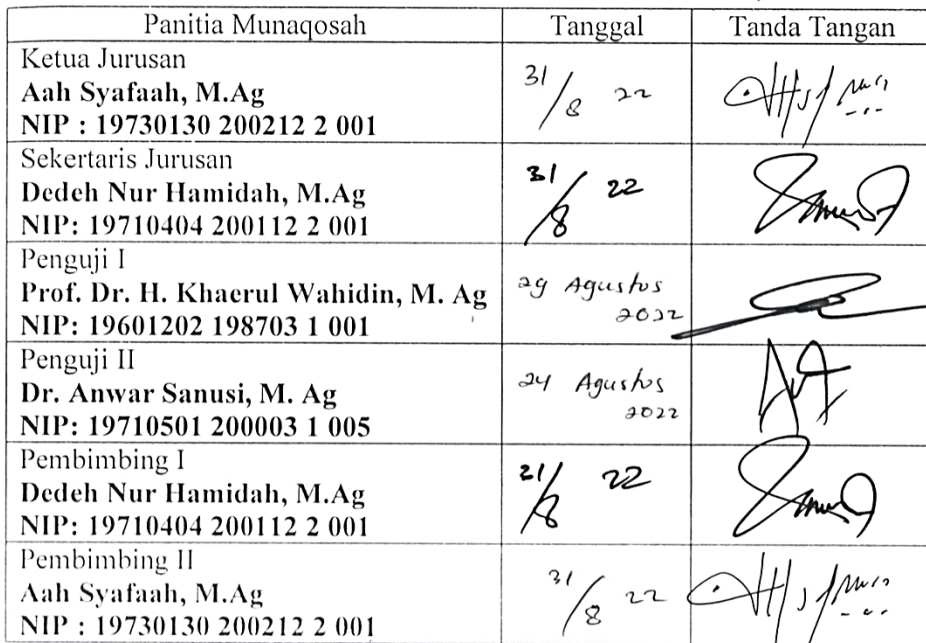 Panitia Munaqosah Tanggal Tanda Tangan
Ketua Jurusan
Aah Syafaah, M.Ag
NIP : 19730130 200212 2 001
31/8 22
Sekertaris Jurusan
Dedeh Nur Hamidah, M.Ag
NIP: 19710404 200112 2 001
31/8 22
Penguji I
Prof. Dr. H. Khaerul Wahidin, M. Ag
NIP: 19601202 198703 1 001
29 Agustus
2022
Penguji II
Dr. Anwar Sanusi, M. Ag
NIP: 19710501 200003 1 005
24 Agustus
2022
Pembimbing I
Dedeh Nur Hamidah, M.Ag
NIP: 19710404 200112 2 001
31/8 22
Pembimbing II
Aah Syafaah, M.Ag
NIP : 19730130 200212 2 001
31/8 22